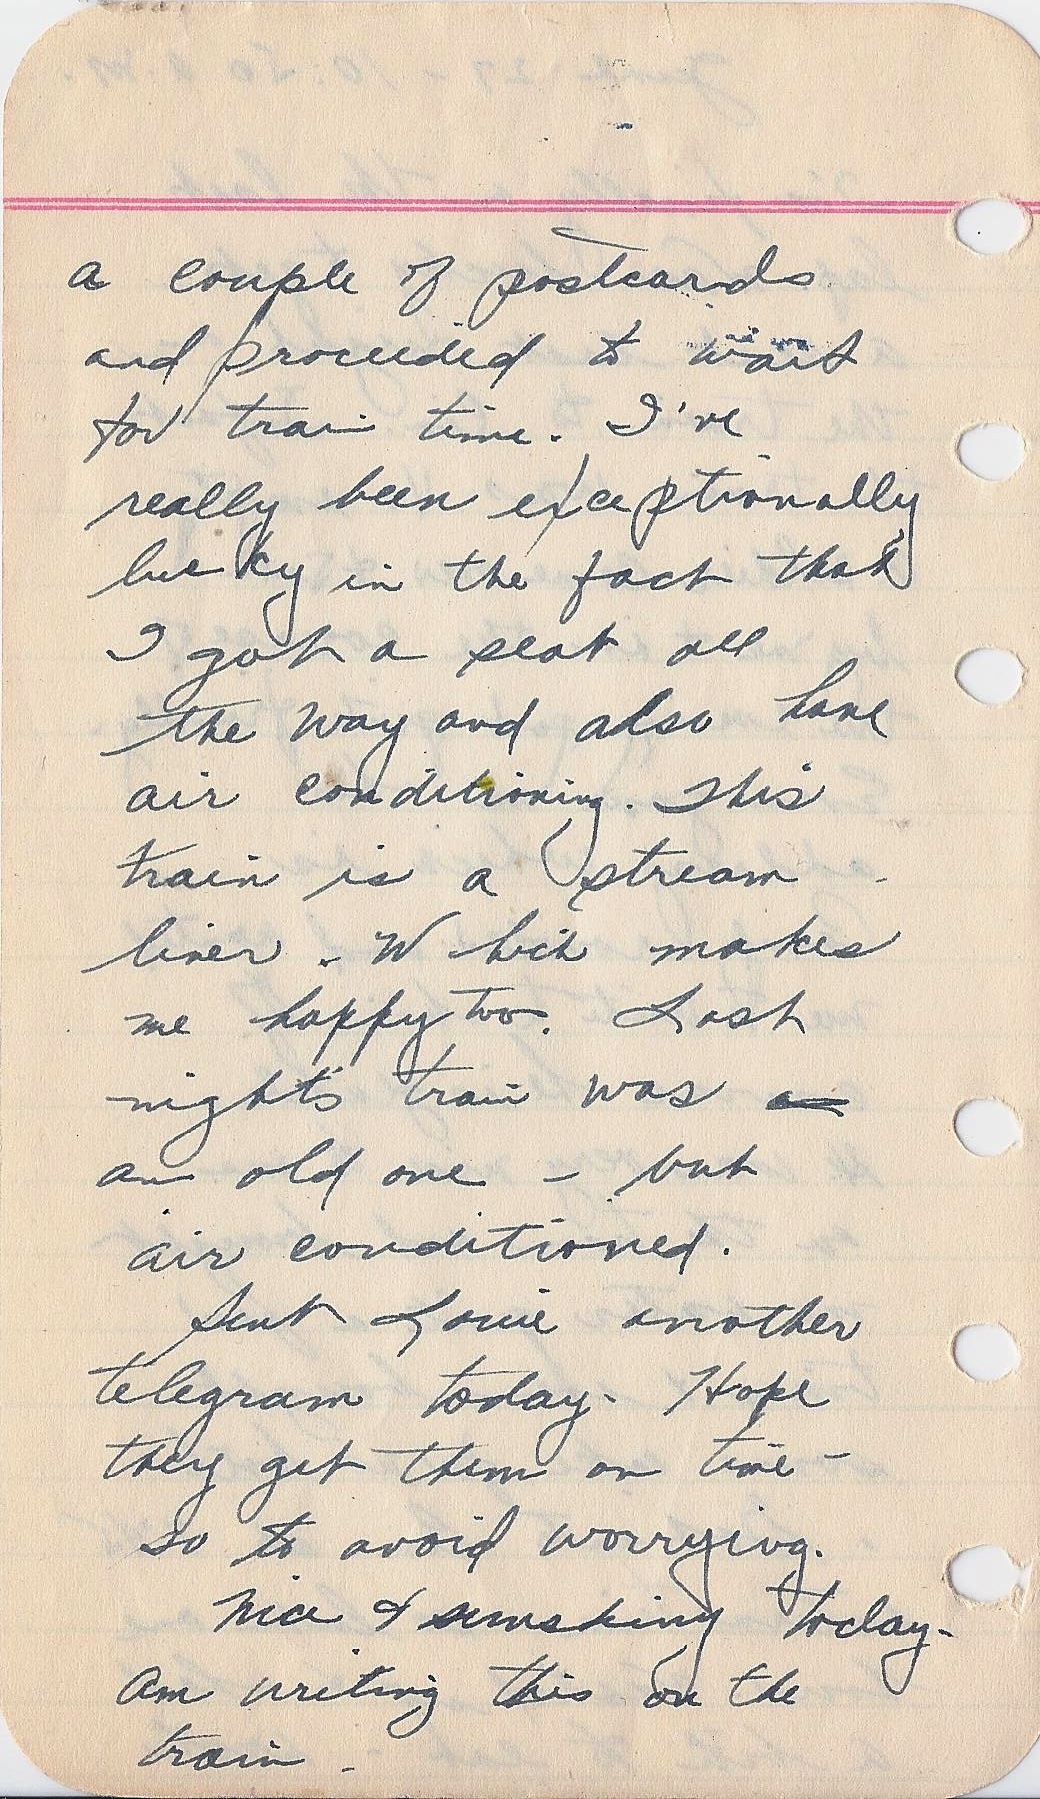 a couple of postcards
and proceeded to wait
for train time. I've
really been exceptionally
lucky in the fact that
I got a seat all
the way and also have
air conditioning. This
train is a stream -
liner. Which makes
me happy too. Last
night's train was
an old one - but
air conditioned.
Sent Louie another
telegram today. Hope
they get them on time -
so to avoid worrying.
Nice & sunshiny today -
am writing this on the
train -